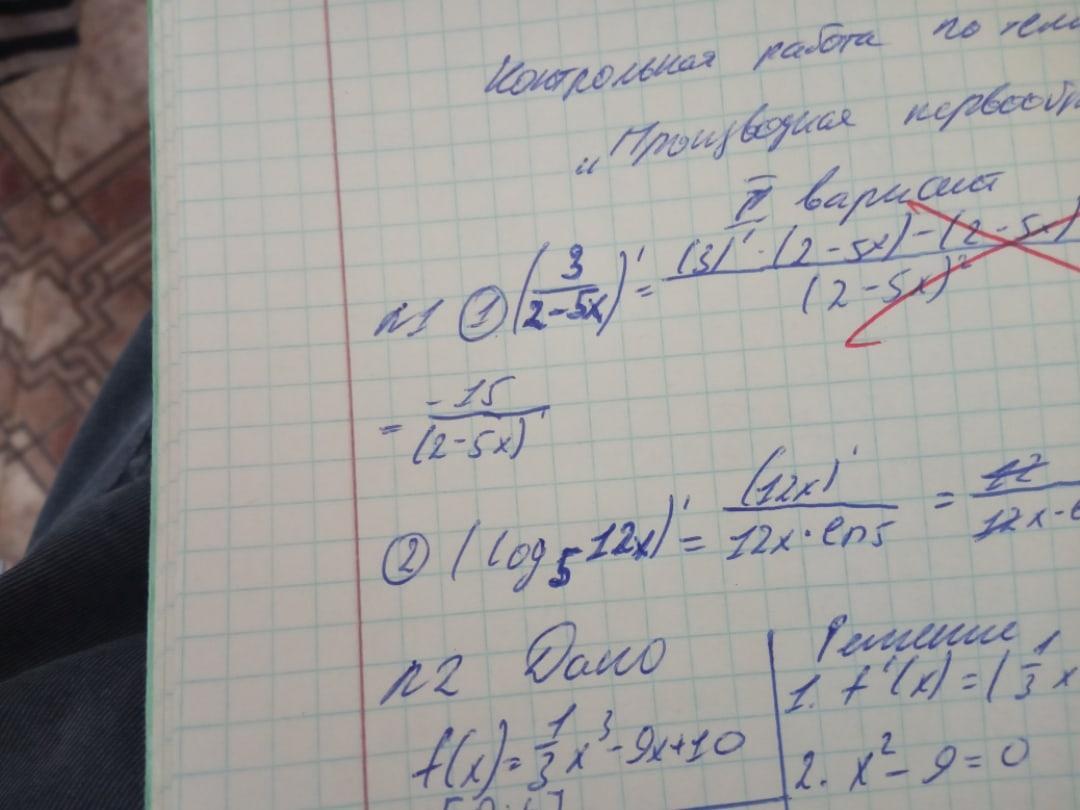 Контрольная работа по тем
„Производная первообр
II вариант
n1 ① (3/(2-5x))' = ((3)'·(2-5x)-(2-5x)/(2-5x)²
= -15/(2-5x)'
② (log₅12x)' = (12x)'/(12x·ln5) = 12/(12x·l
n2 Дано
Решение
f(x)=1/3x³-9x+10
1. f'(x)=(1/3x
2. x²-9=0